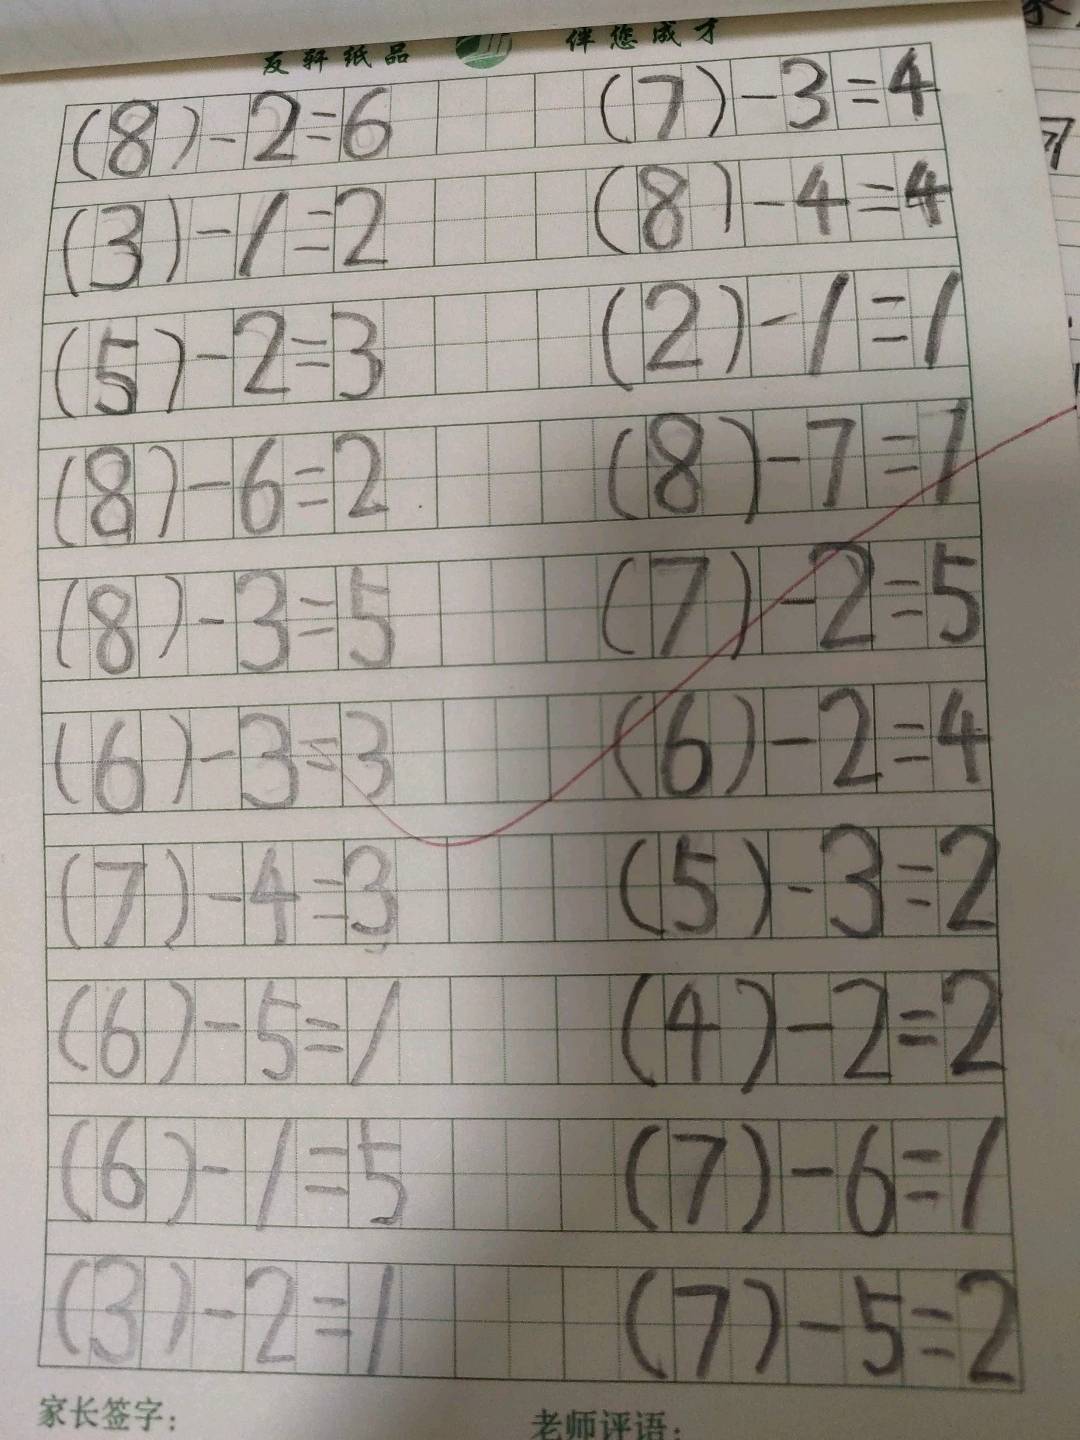 友轩纸品 伴您成才
(8)-2=6 (7)-3=4
(3)-1=2 (8)-4=4
(5)-2=3 (2)-1=1
(8)-6=2 (8)-7=1
(8)-3=5 (7)-2=5
(6)-3=3 (6)-2=4
(7)-4=3 (5)-3=2
(6)-5=1 (4)-2=2
(6)-1=5 (7)-6=1
(3)-2=1 (7)-5=2
家长签字: 老师评语: